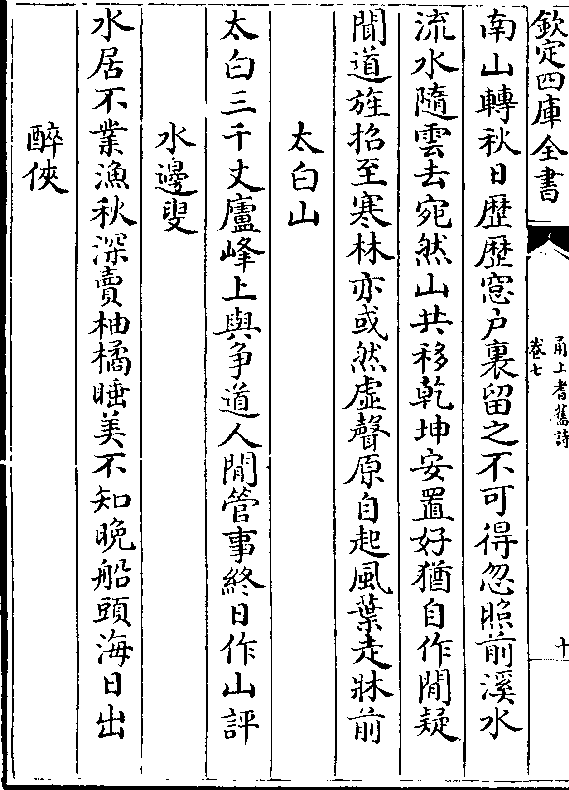 欽定四庫全書
甬上耆舊詩
卷七
十
南山轉秋日歴歴窓户裏留之不可得忽照前溪水
流水隨雲去宛然山共移乾坤安置好猶自作閒疑
聞道旌招至寒林亦或然虚聲原自起風葉走牀前
太白山
太白三千丈廬峰上與爭道人閒管事終日作山評
水邊叟
水居不業漁秋深賣柚橘睡美不知晚船頭海日出
醉俠